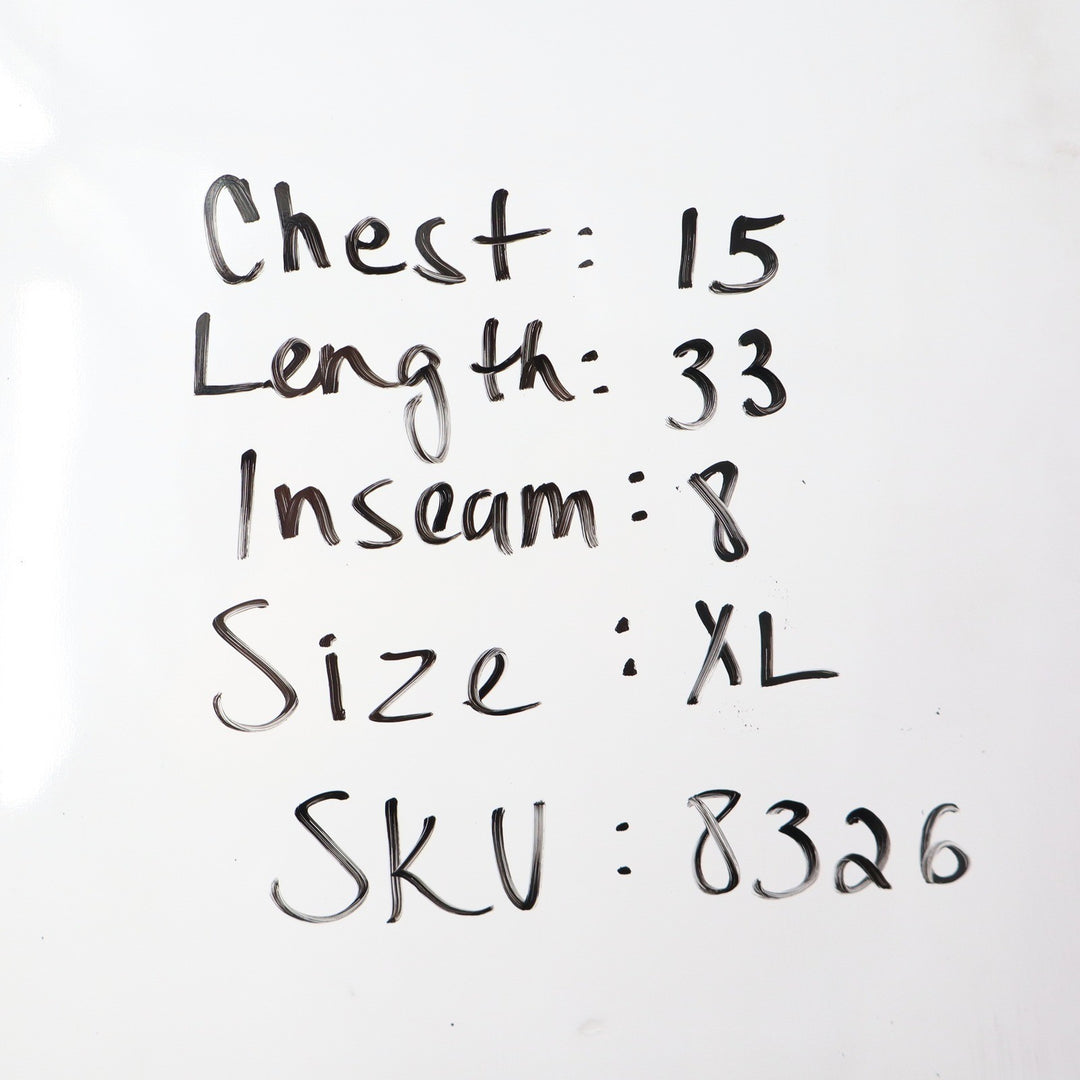 Chest: 15
Length: 33
Inseam: 8
Size: XL
SKU: 8326